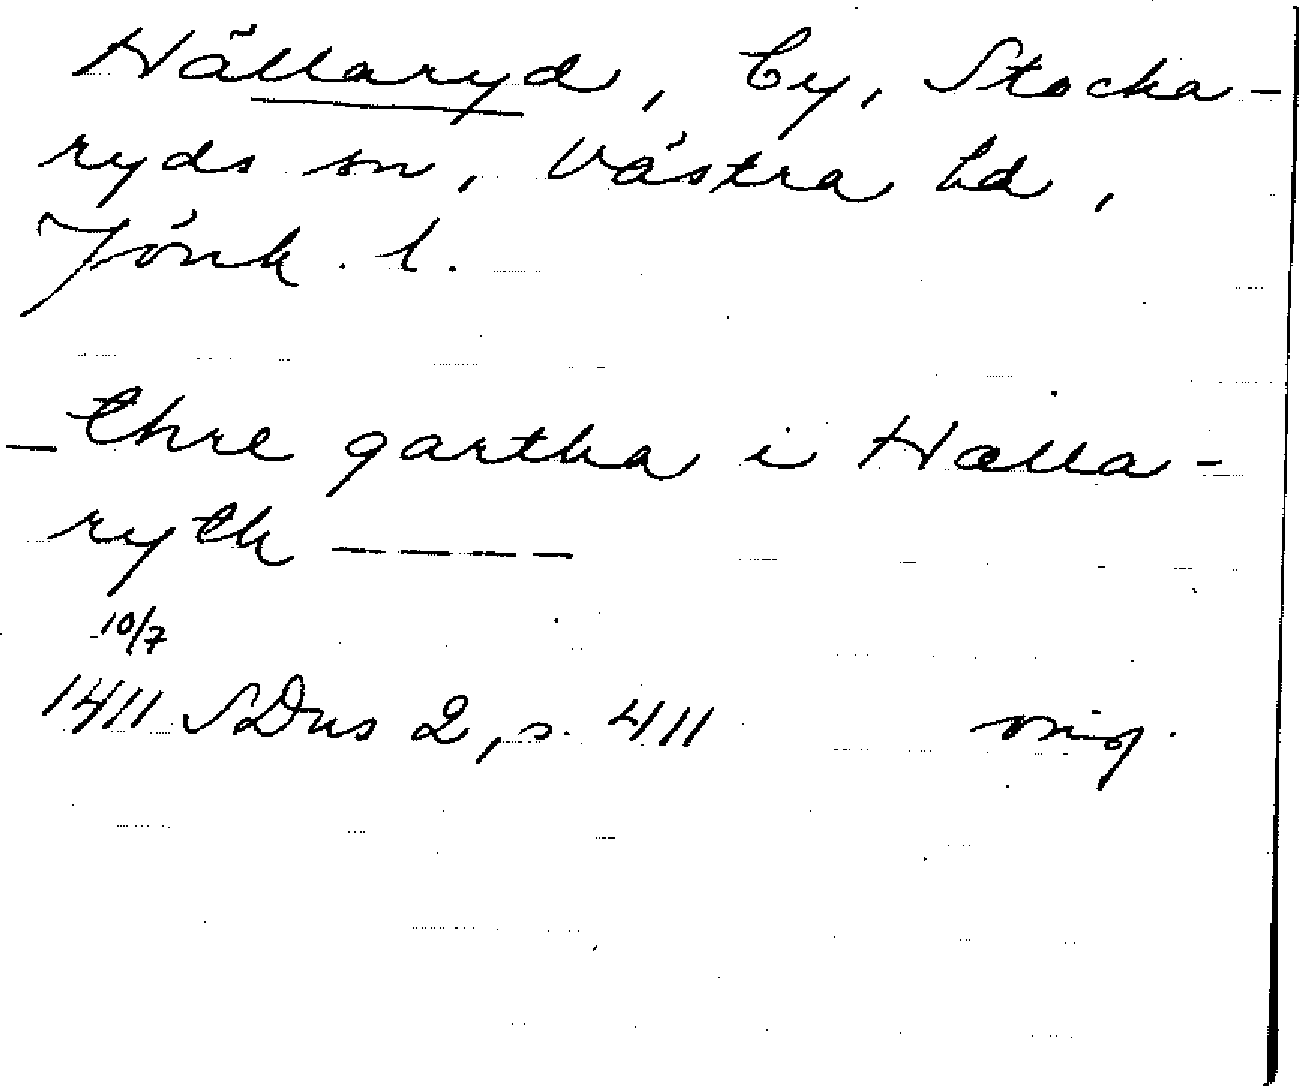 Hällaryd, by, Stocka-
ryds sn, Västra hd,
Jönk. l.
— thre gartha i Halla-
ryth — — — —
10/7
1411 SDns 2, s. 411 orig.